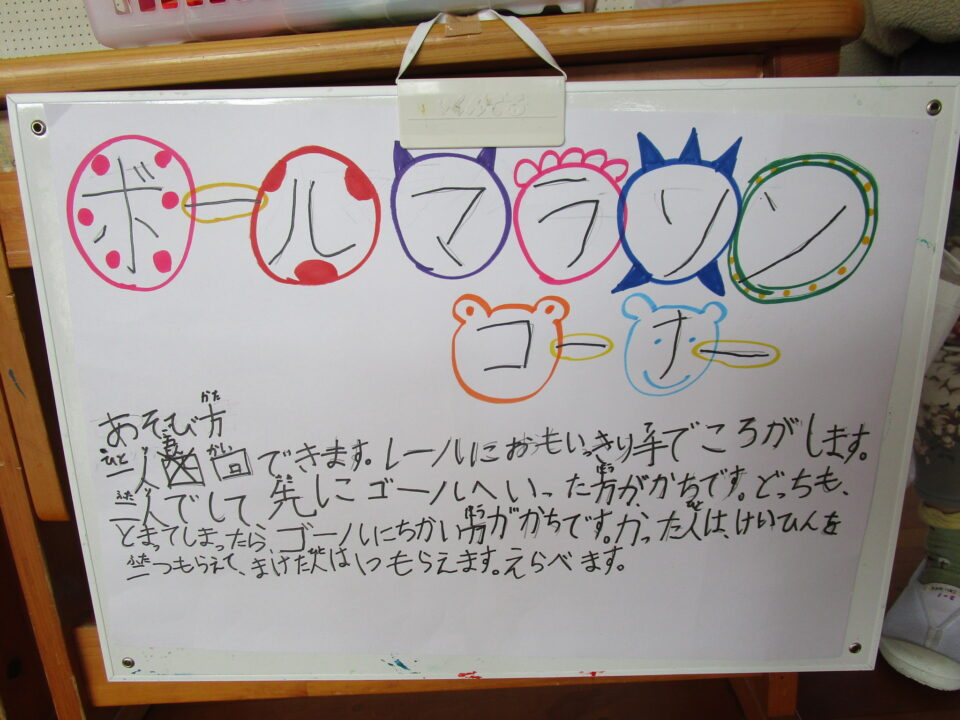 ボールマラソン
コーナー
あそび方
一人一回できます。レールにおもいっきり手でころがします。
二人でして先にゴールへいった方が、かちです。どっちも、
とまってしまったら、ゴールにちかい方がかちです。かった人は、けいひんを
二つもらえて、まけた人は1つもらえます。えらべます。